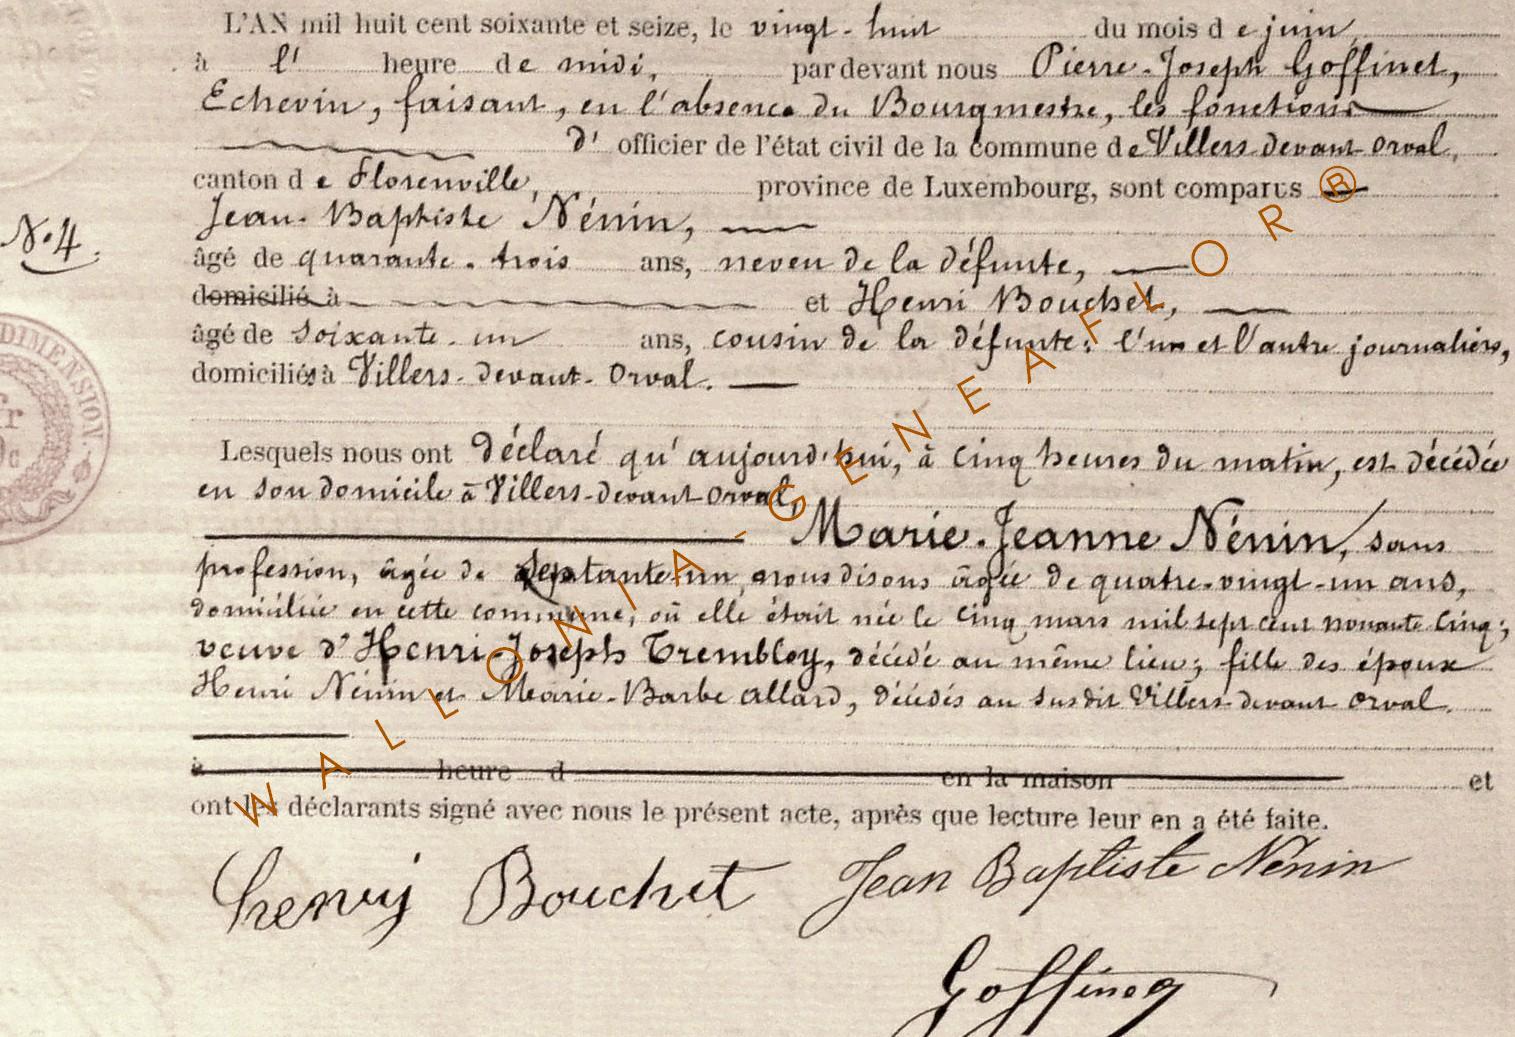 L'AN mil huit cent soixante et seize, le vingt-huit du mois de juin,
à l' heure de midi, par devant nous Pierre-Joseph Goffinet,
Echevin, faisant, en l'absence du Bourgmestre, les fonctions
d' officier de l'état civil de la commune de Villers devant Orval,
canton de Florenville, province de Luxembourg, sont comparus
Jean-Baptiste Nénin,
N.º 4.
âgé de quarante-trois ans, neveu de la défunte,
domicilié à et Henri Bouchet,
âgé de soixante-un ans, cousin de la défunte; l'un et l'autre journaliers,
domiciliés à Villers-devant-Orval.
DIMENSION.
Lesquels nous ont déclaré qu'aujourd'hui, à cinq heures du matin, est décédée
en son domicile à Villers-devant Orval,
Marie-Jeanne Nénin, sans
profession, âgée de septante-un, nous disons âgée de quatre-vingt-un ans,
domiciliée en cette commune, où elle était née le cinq mars mil sept cent nonante cinq;
veuve d'Henri-Joseph Trembloy, décédé au même lieu; fille des époux
Henri Nénin et Marie-Barbe Allard, décédés au susdit Villers-devant Orval.
à heure d en la maison et
ont les déclarants signé avec nous le présent acte, après que lecture leur en a été faite.
henry Bouchet Jean Baptiste Nénin
Goffinet
WALLONIA-GENEAFLOR®